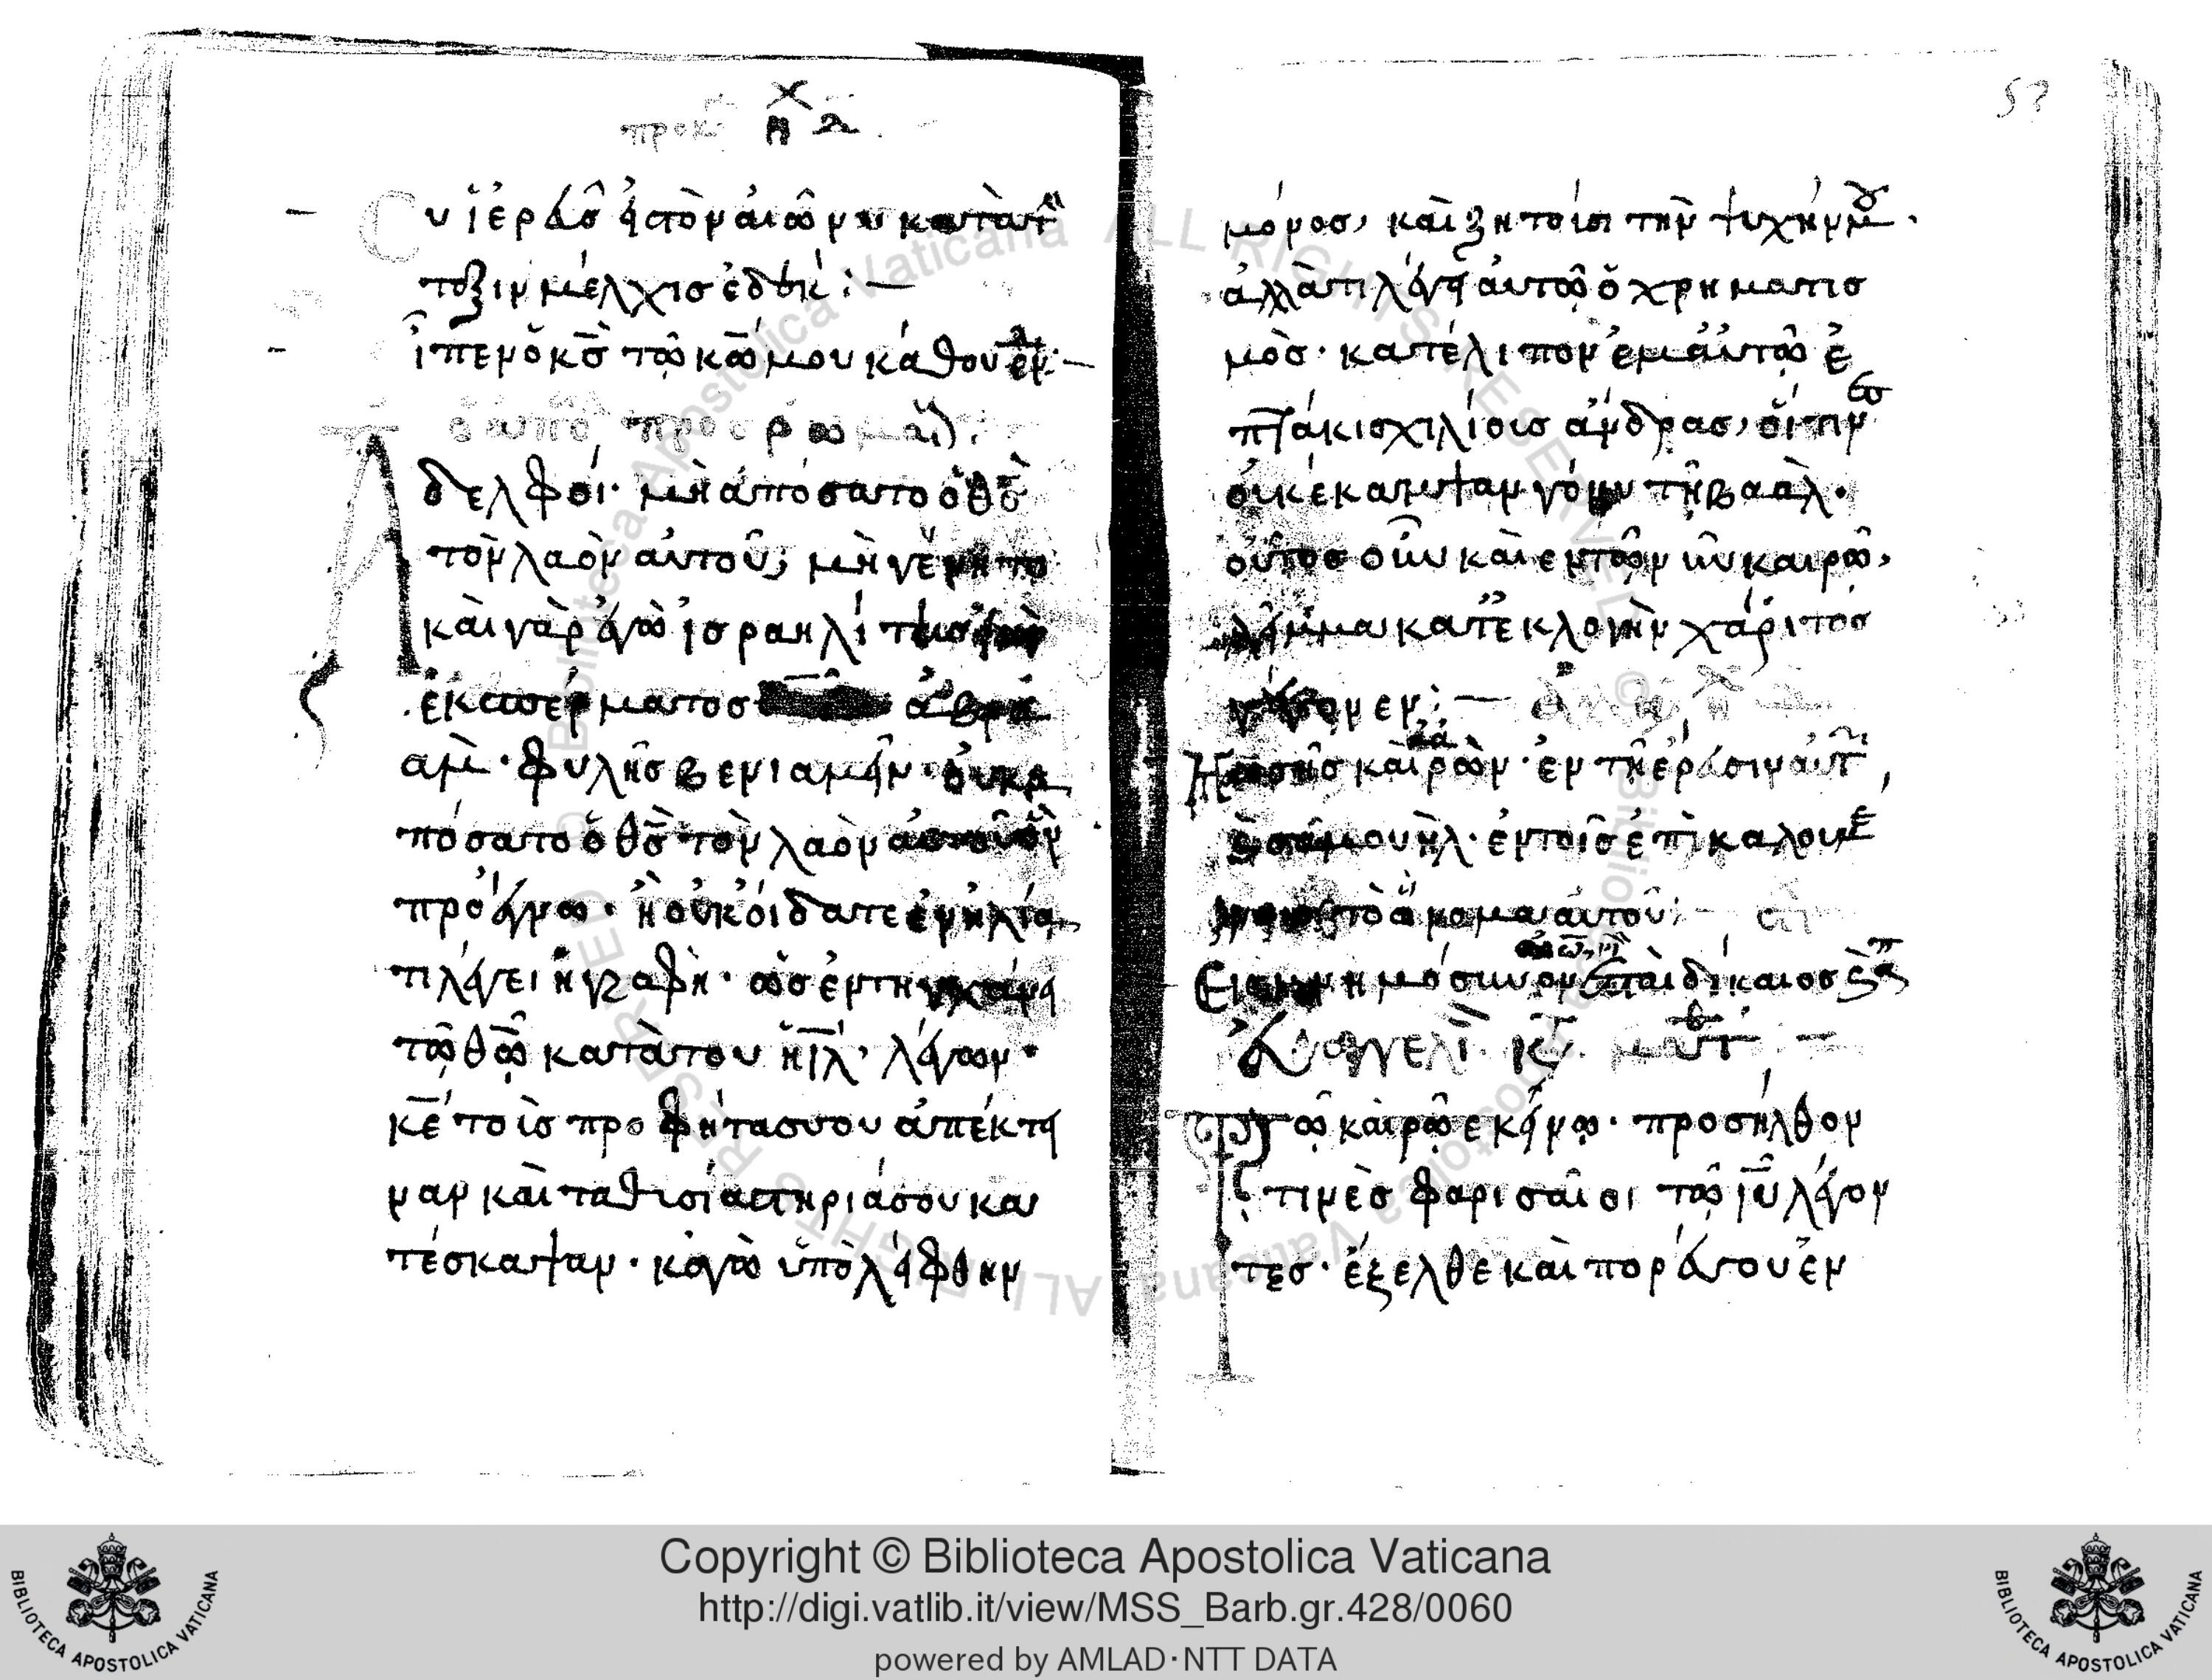 προκ ἦχ δ
Συ ἱερεὺς εἰς τὸν αἰῶνα κατὰ τὴν
τάξιν μελχισεδέκ: —
εἶπεν ὁ κς τῶ κῶ μου κάθου ἐκ: —
ὁ ἀπο προς ρωμαι
Ἀδελφοί· μὴ ἀπόσατο ὁ θς
τὸν λαὸν αὐτοῦ; μὴ γένητο
καὶ γὰρ ἐγὼ ἰσραηλί της
ἐκ σπέρματος ἀβρα
αμ· φυλῆς βενιαμεὶν· οὐκ α
πόσατο ὁ θς τὸν λαὸν αὐτοῦ ὃν
προέγνω· ἢ οὐκ οἴδατε ἐν ἠλία
τι λέγει ἡ γραφὴ· ὡς ἐντηγχάνει
τῶ θῶ κατὰ του ἰηλ· λέγων·
κε τοὶς προφήτας σου ἀπέκτει
ναν καὶ τα θισιαστηριά σου κα
τέσκαψαν· κἀγὼ ὑπολείφθην
53
μόνος, καὶ ζητοίσι τὴν ψυχήν μου·
ἀλλὰ τι λέγει αὐτῶ ὁ χρηματισ
μὸς· κατέλιπον ἐμαὐτῶ ἑ
πτάκισχιλίοις ἄνδρας, οἵτινες
οὐκ ἔκαμψαν γόνυ τῆ βαάλ·
οὕτος οὖν καὶ ἐν τῶ νῦν καιρῶ,
λείμμα κατ ἐκλογὴν χάριτος
γέγονεν: —
Μωσῆς καὶ ἀαρὼν· ἐν τοῖς ἱερεύσιν αὐτοῦ,
καὶ σαμουὴλ· ἐν τοῖς ἐπικαλουμέ
νοις τὸ ὄνομα αὐτοῦ: — στι
Εις μνημόσυνον αἰώνιον ἔσται δίκαιος
εὐαγγελι κτ ματθ —
Τῶ καιρῶ ἐκείνω· προσήλθον
τινὲς φαρισαῖοι τῶ ιυ λέγον
τες· ἔξελθε καὶ πορεύου ἐν
Copyright © Biblioteca Apostolica Vaticana
http://digi.vatlib.it/view/MSS_Barb.gr.428/0060
powered by AMLAD·NTT DATA
BIBLIOTECA APOSTOLICA VATICANA
BIBLIOTECA APOSTOLICA VATICANA